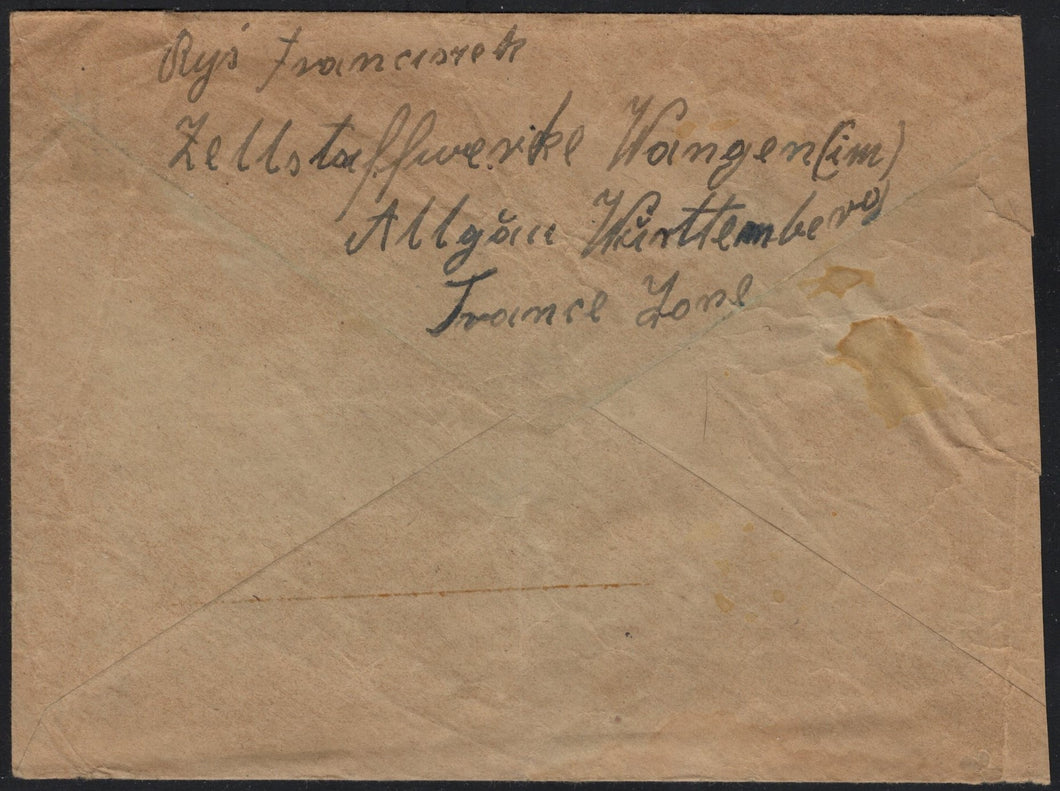 Ryś Franciszek
Zellstaffwerke Wangen (im)
Allgäu Württemberg
France Zone